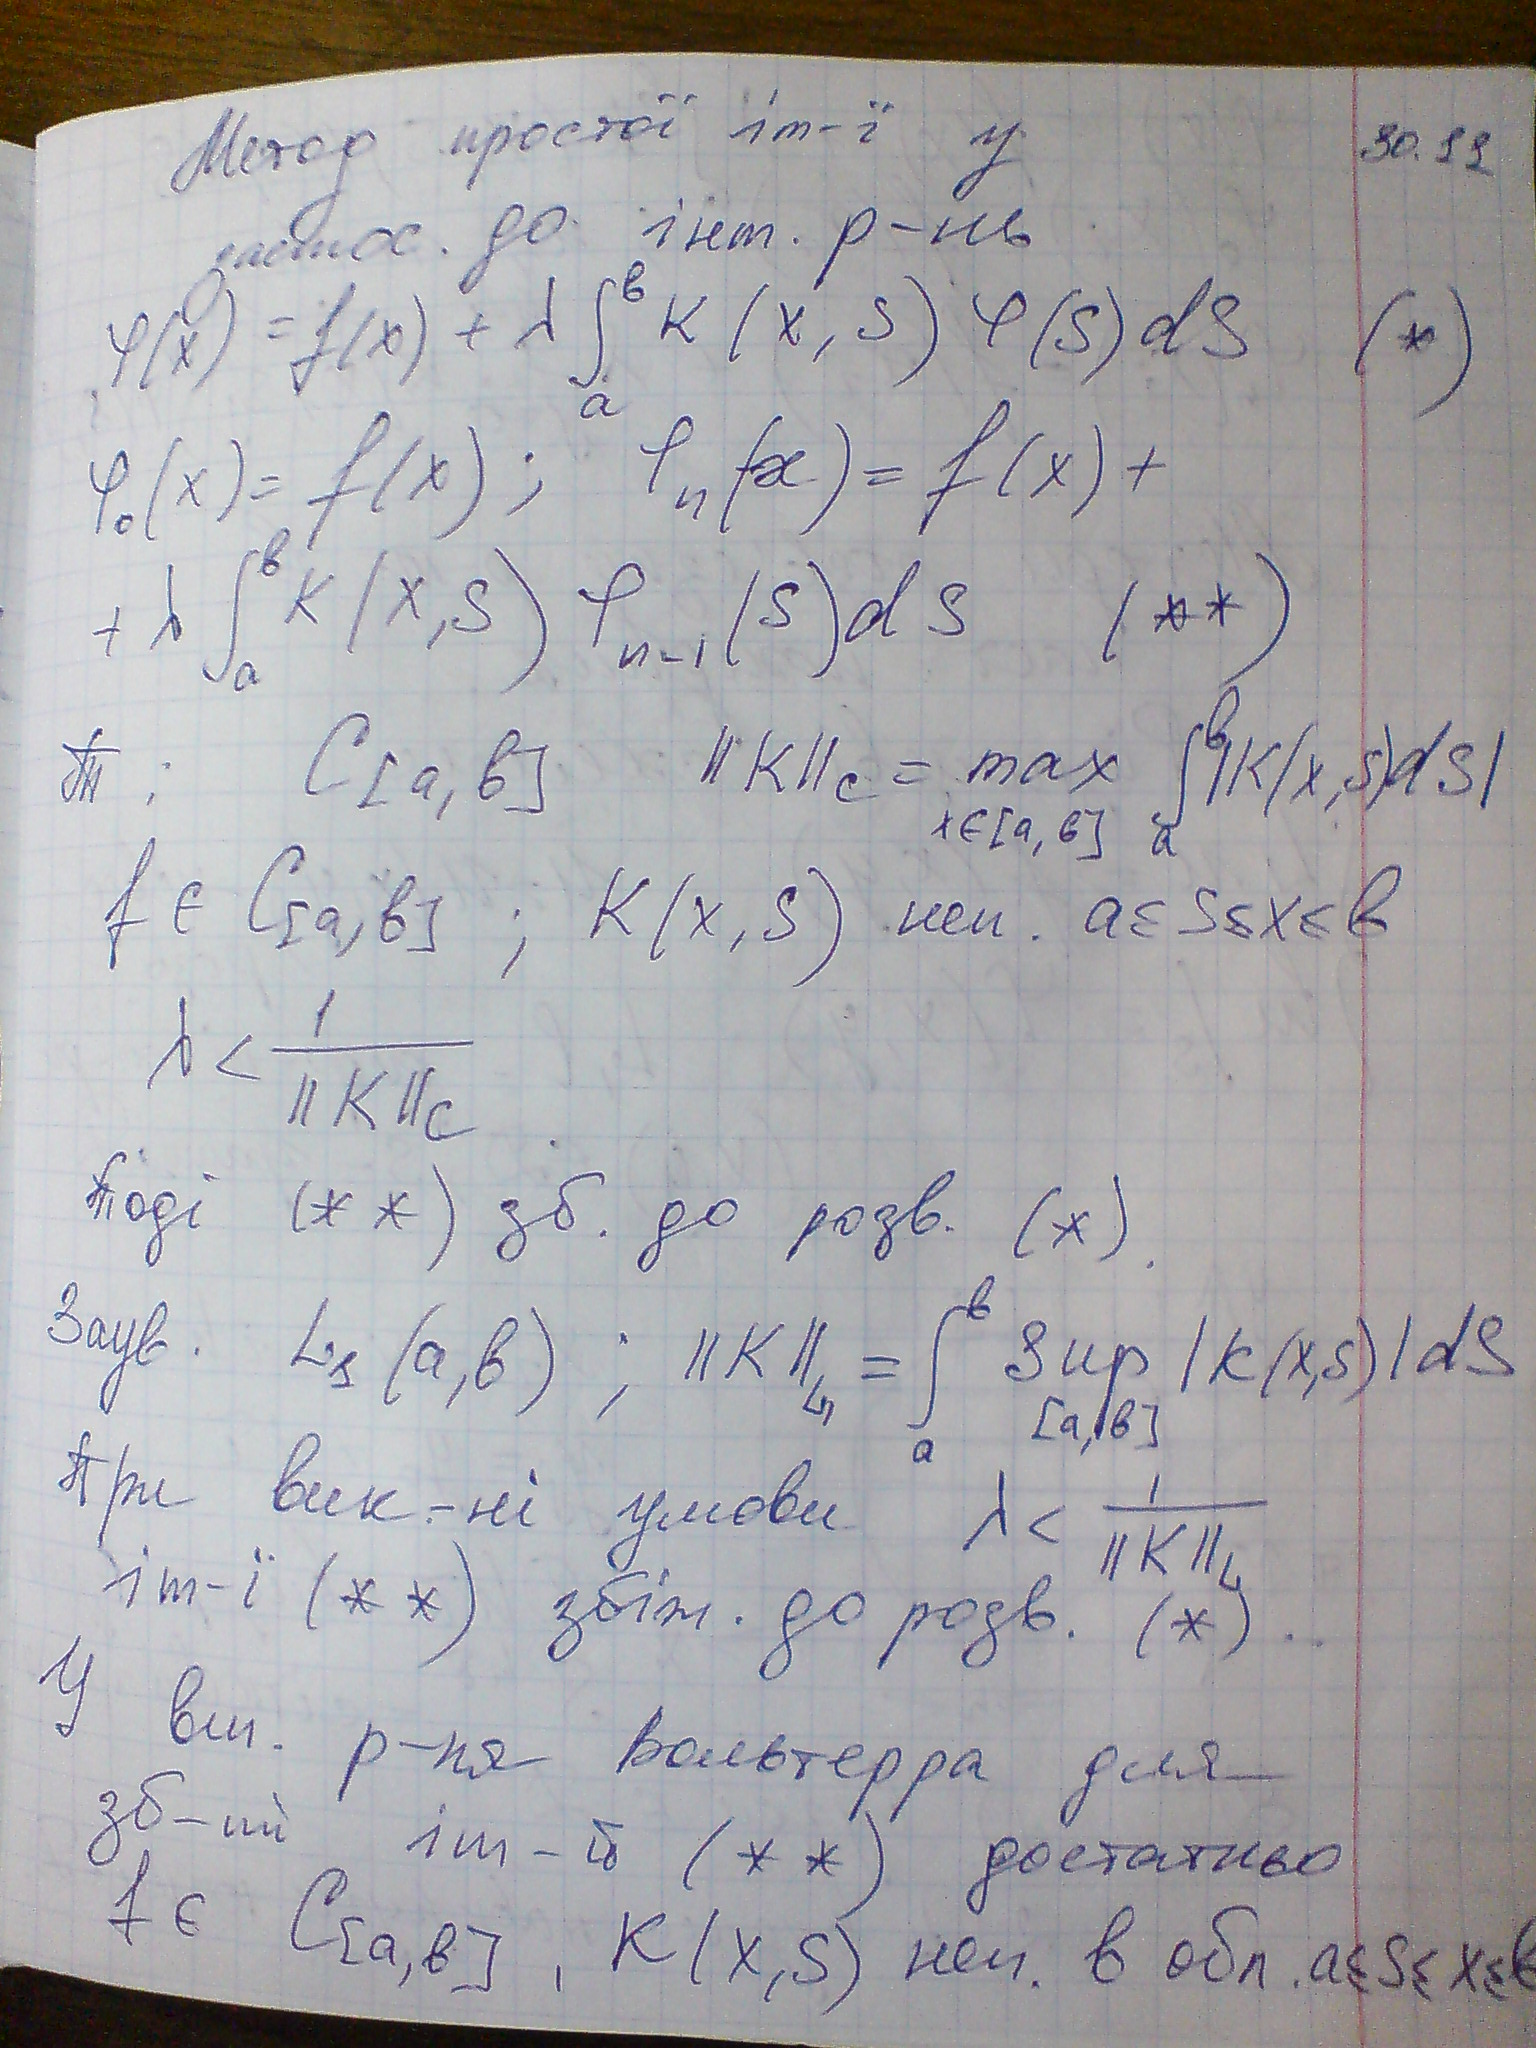 Метод простої іт-ї у 30.11
застос. до інт. р-нь
φ(x) = f(x) + λ ∫ₐᵇ K(x,s) φ(s)ds (*)
φ₀(x) = f(x); φₙ(x) = f(x) +
+ λ ∫ₐᵇ K(x,s) φₙ₋₁(s)ds (**)
Т: C[a,b] ||K||_C = max_{x∈[a,b]} ∫ₐᵇ |K(x,s)ds|
f ∈ C[a,b]; K(x,s) неп. a≤s≤x≤b
λ < 1/||K||_C.
Тоді (**) зб. до розв. (*).
Заув. L₁(a,b); ||K||_{L₁} = ∫ₐᵇ sup_{[a,b]} |K(x,s)|ds
При вик-ні умови λ < 1/||K||_L
іт-ї (**) збіж. до розв. (*)..
У вип. р-ня Вольтерра для
зб-ті іт-й (**) достатньо
f ∈ C[a,b], K(x,s) неп. в обл. a≤s≤x≤b